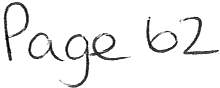 Page 62